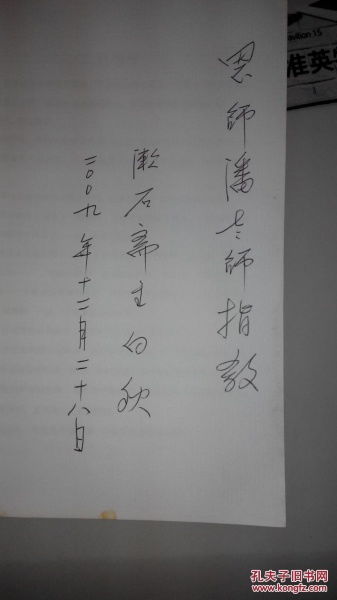 恩師潘老師指教
漱石斋主白秋
二00九年十二月二十八日
avilion 15
准英
孔夫子旧书网
KONGFZ.COM